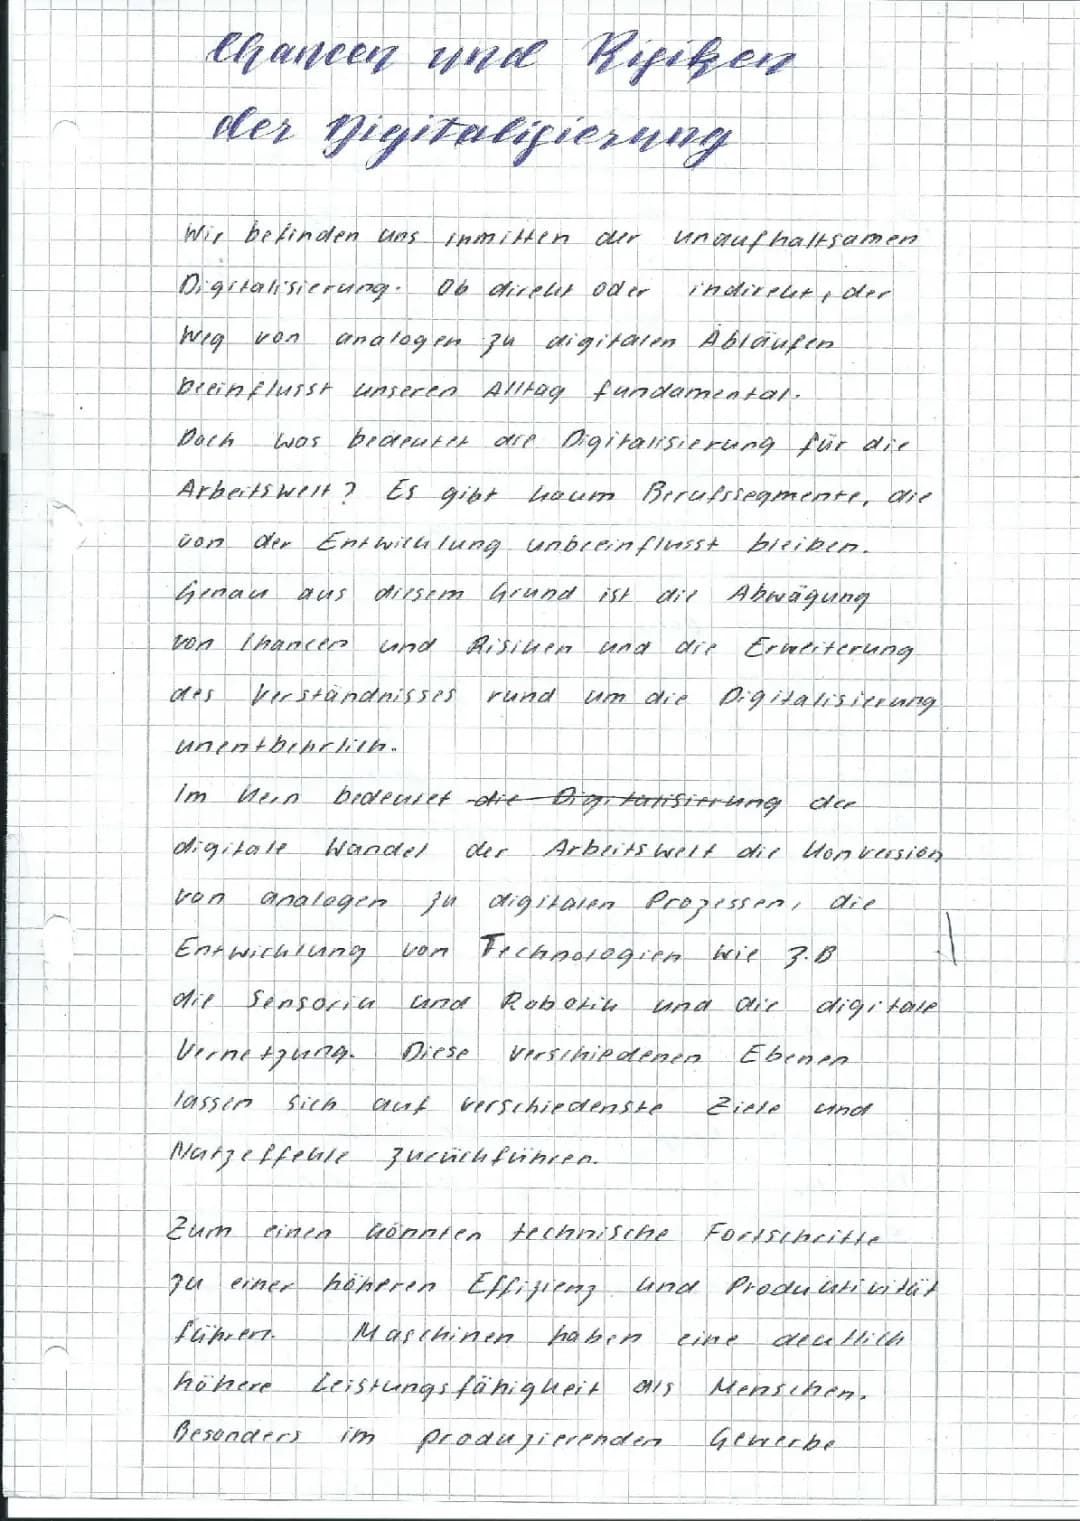 Chancen und Risiken
der Digitalisierung
Wir befinden uns inmitten der unaufhaltsamen
Digitalisierung. Ob direkt oder indirekt, der
Weg von analogen zu digitalen Abläufen
beeinflusst unseren Alltag fundamental.
Doch was bedeutet die Digitalisierung für die
Arbeitswelt? Es gibt kaum Berufssegmente, die
von der Entwicklung unbeeinflusst bleiben.
Genau aus diesem Grund ist die Abwägung
von Chancen und Risiken und die Erweiterung
des Verständnisses rund um die Digitalisierung
unentbehrlich.
Im Kern bedeutet die Digitalisierung der
digitale Wandel der Arbeitswelt die Konversion
von analogen zu digitalen Prozessen, die
Entwicklung von Technologien wie z.B
die Sensorik und Robotik und die digitale
Vernetzung. Diese verschiedenen Ebenen
lassen sich auf verschiedenste Ziele und
Nutzeffekte zurückführen.
Zum einen könnten technische Fortschritte
zu einer höheren Effizienz und Produktivität
führen. Maschinen haben eine deutlich
höhere Leistungsfähigkeit als Menschen.
Besonders im produzierenden Gewerbe